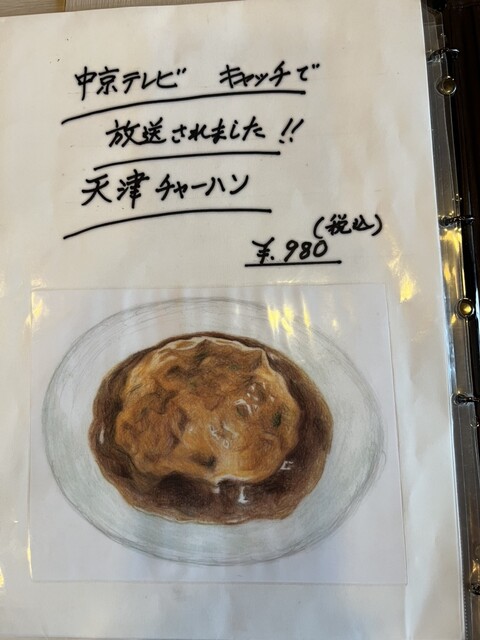 中京テレビ キャッチで
放送されました!!
天津チャーハン
(税込)
¥.980